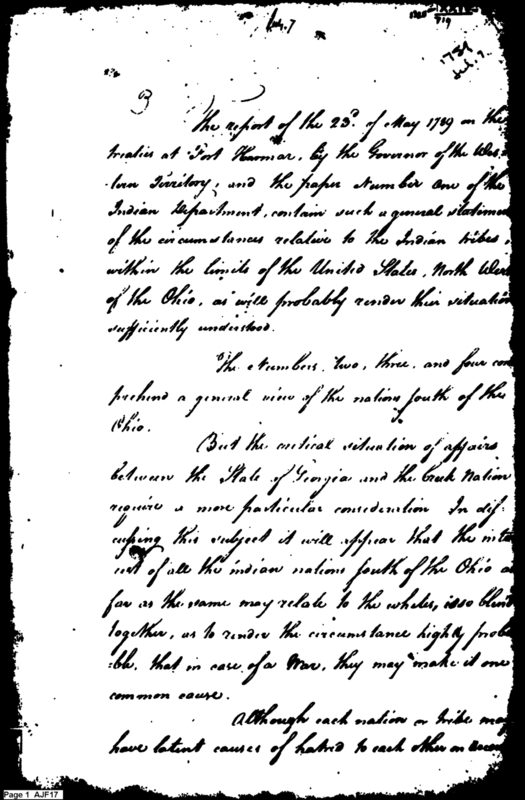 July. 7
1789
July. 7.
The report of the 23d. of May 1789 on the
treaties at Fort Harmar, by the Governor of the Wes-
tern Territory, and the paper Number one of the
Indian Department, contain such a general statemen
of the circumstances relative to the Indian tribes,
within the limits of the United States, North West
of the Ohio, as will probably render their situation
sufficiently understood.
The Numbers, two, three, and four com
prehend a general view of the nations South of the
Ohio.
But the critical situation of affairs
between the State of Georgia and the Creek Nation
require a more particular consideration In dis-
cussing this subject it will appear that the inte
rest of all the indian nations South of the Ohio as
far as the same may relate to the whites, is so blend
together, as to render the circumstance highly proba
:ble, that in case of a War, they may make it one
common cause.
Although each nation or tribe may
have latent causes of hatred to each other on
Page 1 AJF17